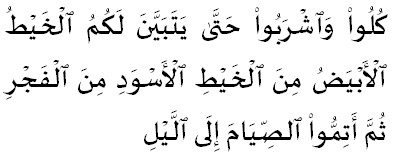 كُلُوا۟ وَٱشْرَبُوا۟ حَتَّىٰ يَتَبَيَّنَ لَكُمُ ٱلْخَيْطُ
ٱلْأَبْيَضُ مِنَ ٱلْخَيْطِ ٱلْأَسْوَدِ مِنَ ٱلْفَجْرِ
ثُمَّ أَتِمُّوا۟ ٱلصِّيَامَ إِلَى ٱلَّيْلِ